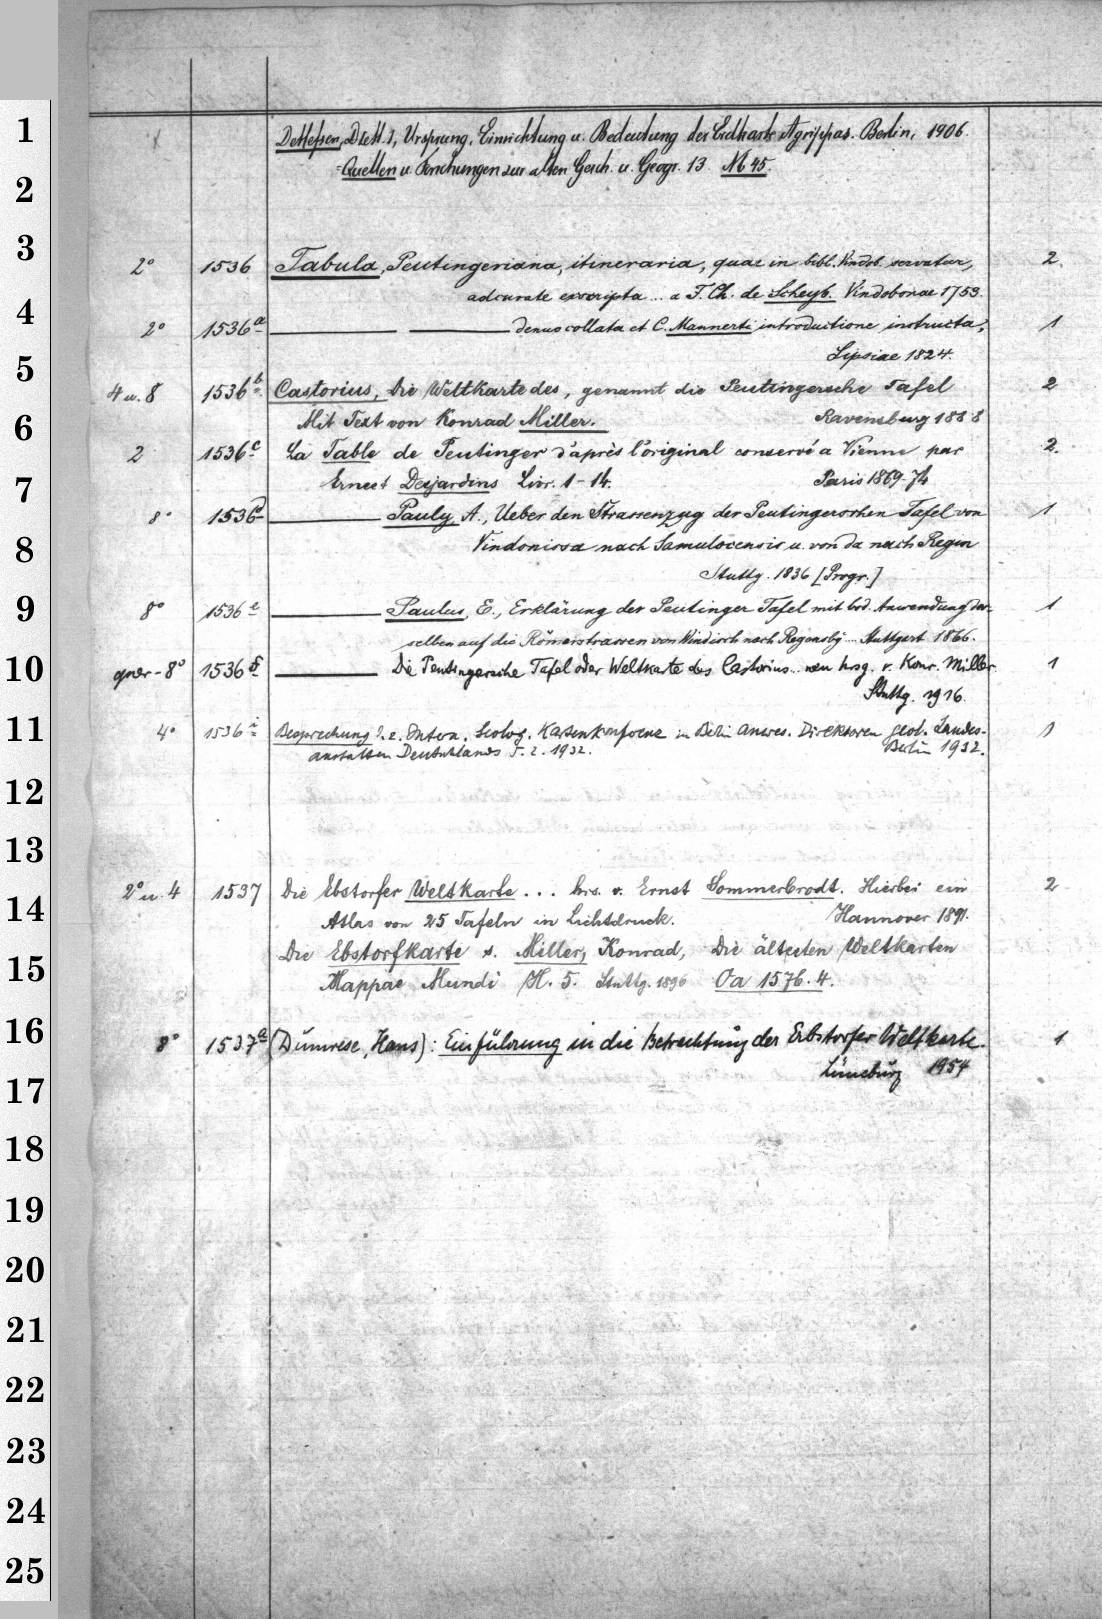 1
Detlefsen, Detl. s, Ursprung, Einrichtung u. Bedeutung der Erdkarte Agrippas. Berlin, 1906.
2
= Quellen u. Forschungen zur alten Gesch. u. Geogr. 13 M 45.
3
2° 1536 Tabula, Peutingeriana, itineraria, quae in bibl. Vindob. servatur, 2.
adcurate exscripta ... a F. Ch. de Scheyb. Vindobonae 1753.
4
2° 1536a denuo collata et C. Mannerti introductione instructa, 1
Lipsiae 1824.
5
4 u. 8 1536b. Castorius, Die Weltkarte des, genannt die Peutingersche Tafel 2
6
Mit Text von Konrad Miller. Ravensburg 1888
2 1536c La Table de Peutinger d'après l'original conservé a Vienne par 2.
7
Ernest Desjardins Livr. 1-14. Paris 1869-74
8° 1536d Pauly, A., Ueber den Strassenzug der Peutingerschen Tafel von 1
8
Vindonissa nach Samulocensis u. von da nach Regin
Stuttg. 1836 [Progr.]
9
8° 1536e Paulus, E., Erklärung der Peutinger Tafel mit bes. Anwendung der- 1
selben auf die Römerstrassen von Windisch nach Regensbg ... Stuttgart 1866.
10
quer-8° 1536f Die Peutingersche Tafel oder Weltkarte des Castorius... neu hrsg. v. Konr. Miller 1
Stuttg. 1916.
11
4° 1536i Besprechung d. z. Intern. Geolog. Kartenkonferenz in Berlin anwes. Direktoren geol. Landes- 1
anstalten Deutschlands 5. 2. 1932. Berlin 1932.
12
13
14
2° u. 4 1537 Die Ebstorfer Weltkarte ... hrs. v. Ernst Sommerbrodt. Hierbei ein 2
Atlas von 25 Tafeln in Lichtdruck. Hannover 1891.
15
Die Ebstorfkarte s. Miller, Konrad, Die ältesten Weltkarten
Mappae Mundi H. 5. Stuttg. 1896 Oa 1576. 4.
16
8° 1537a (Dumrese, Hans): Einführung in die Betrachtung der Erbstorfer Weltkarte. 1
Lüneburg 1954
17
18
19
20
21
22
23
24
25